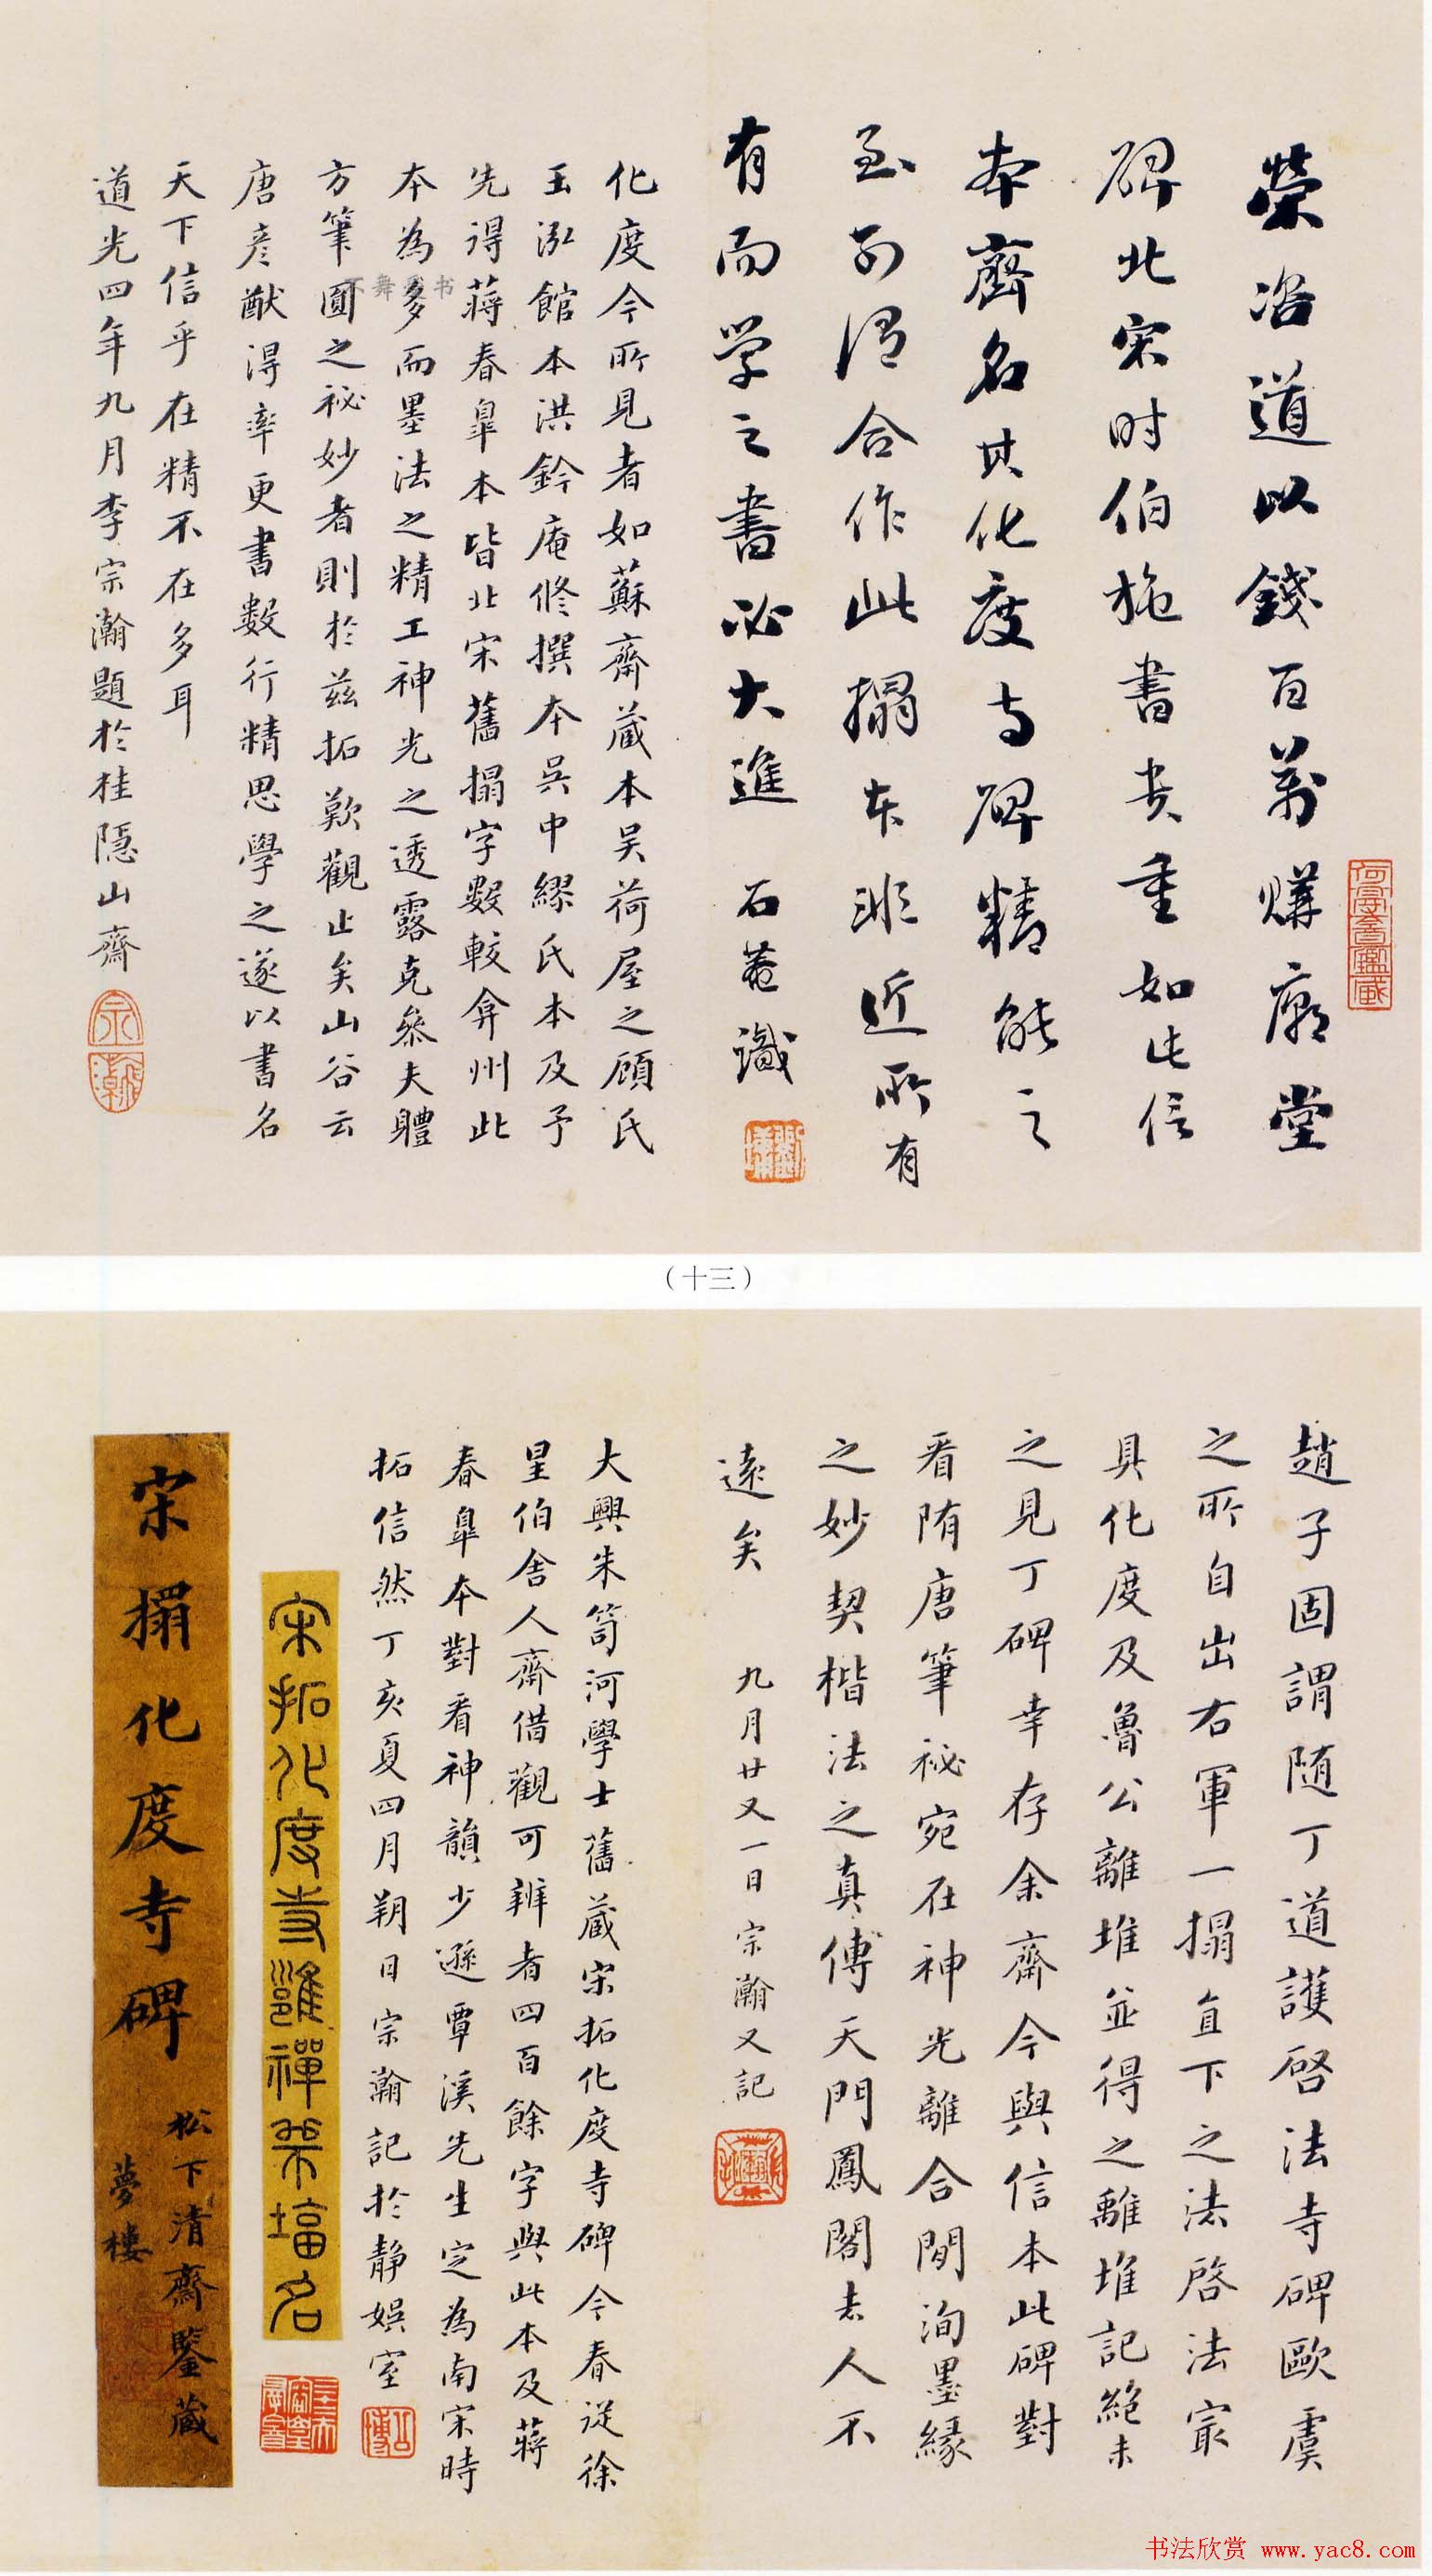 榮咨道以錢百萬購廟堂
碑北宋时伯施書貴重如此信
本齊名其化度寺碑精能之
至可谓合作此搨本非近所有
有而学之書必大進 石菴識
化度今所見者如蘇齋蔵本吴荷屋之顧氏
玉泓館本洪鈐庵修撰本吴中繆氏本及予
先得蔣春皐本皆北宋舊搨字數較弇州此
本為多而墨法之精工神光之透露克叅夫體
方筆圓之祕妙者則於兹拓歎觀止矣山谷云
唐彦猷得率更書數行精思學之遂以書名
天下信乎在精不在多耳
道光四年九月李宗瀚題於桂隱山齋
(十三)
趙子固謂随丁道護啓法寺碑歐虞
之所自出右軍一搨直下之法啓法冣
具化度及魯公離堆並得之離堆記絶未
之見丁碑幸存余齋今與信本此碑對
看隋唐筆祕宛在神光離合間洵墨緣
之妙契楷法之真傳天門鳳閣去人不
遠矣 九月廿又一日宗瀚又記
大興朱笥河學士舊蔵宋拓化度寺碑今春從徐
星伯舍人齋借觀可辨者四百餘字與此本及蔣
春皐本對看神韻少遜覃溪先生定為南宋時
拓信然丁亥夏四月朔日宗瀚記於静娱室
宋拓化度寺邕禪師塔名
宋搨化度寺碑
松下清齋鑒藏
夢樓
书法欣赏 www.yac8.com